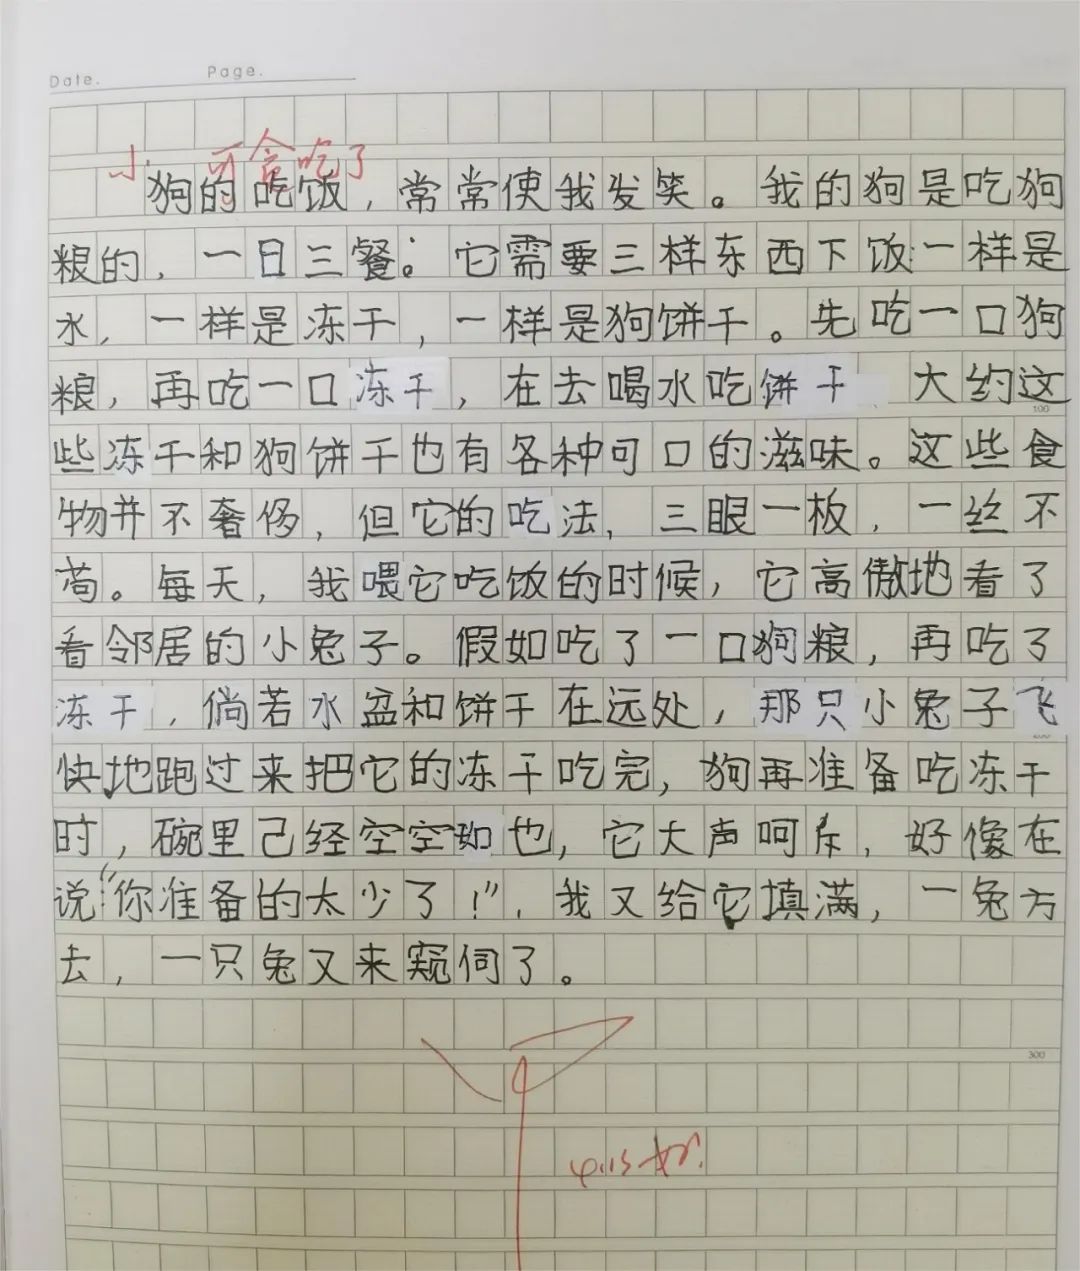 Date.
Page.
小 可贪吃了
狗的吃饭，常常使我发笑。我的狗是吃狗
粮的，一日三餐：它需要三样东西下饭：一样是
水，一样是冻干，一样是狗饼干。先吃一口狗
粮，再吃一口冻干，在去喝水吃饼干 大约这
100
些冻干和狗饼干也有各种可口的滋味。这些食
物并不奢侈，但它的吃法，三眼一板，一丝不
苟。每天，我喂它吃饭的时候，它高傲地看了
看邻居的小兔子。假如吃了一口狗粮，再吃了
冻干，倘若水盆和饼干在远处，那只小兔子飞
200
快地跑过来把它的冻干吃完，狗再准备吃冻干
时，碗里己经空空如也，它大声呵斥，好像在
说“你准备的太少了！”，我又给它填满，一兔方
去，一只兔又来窥伺了。
300